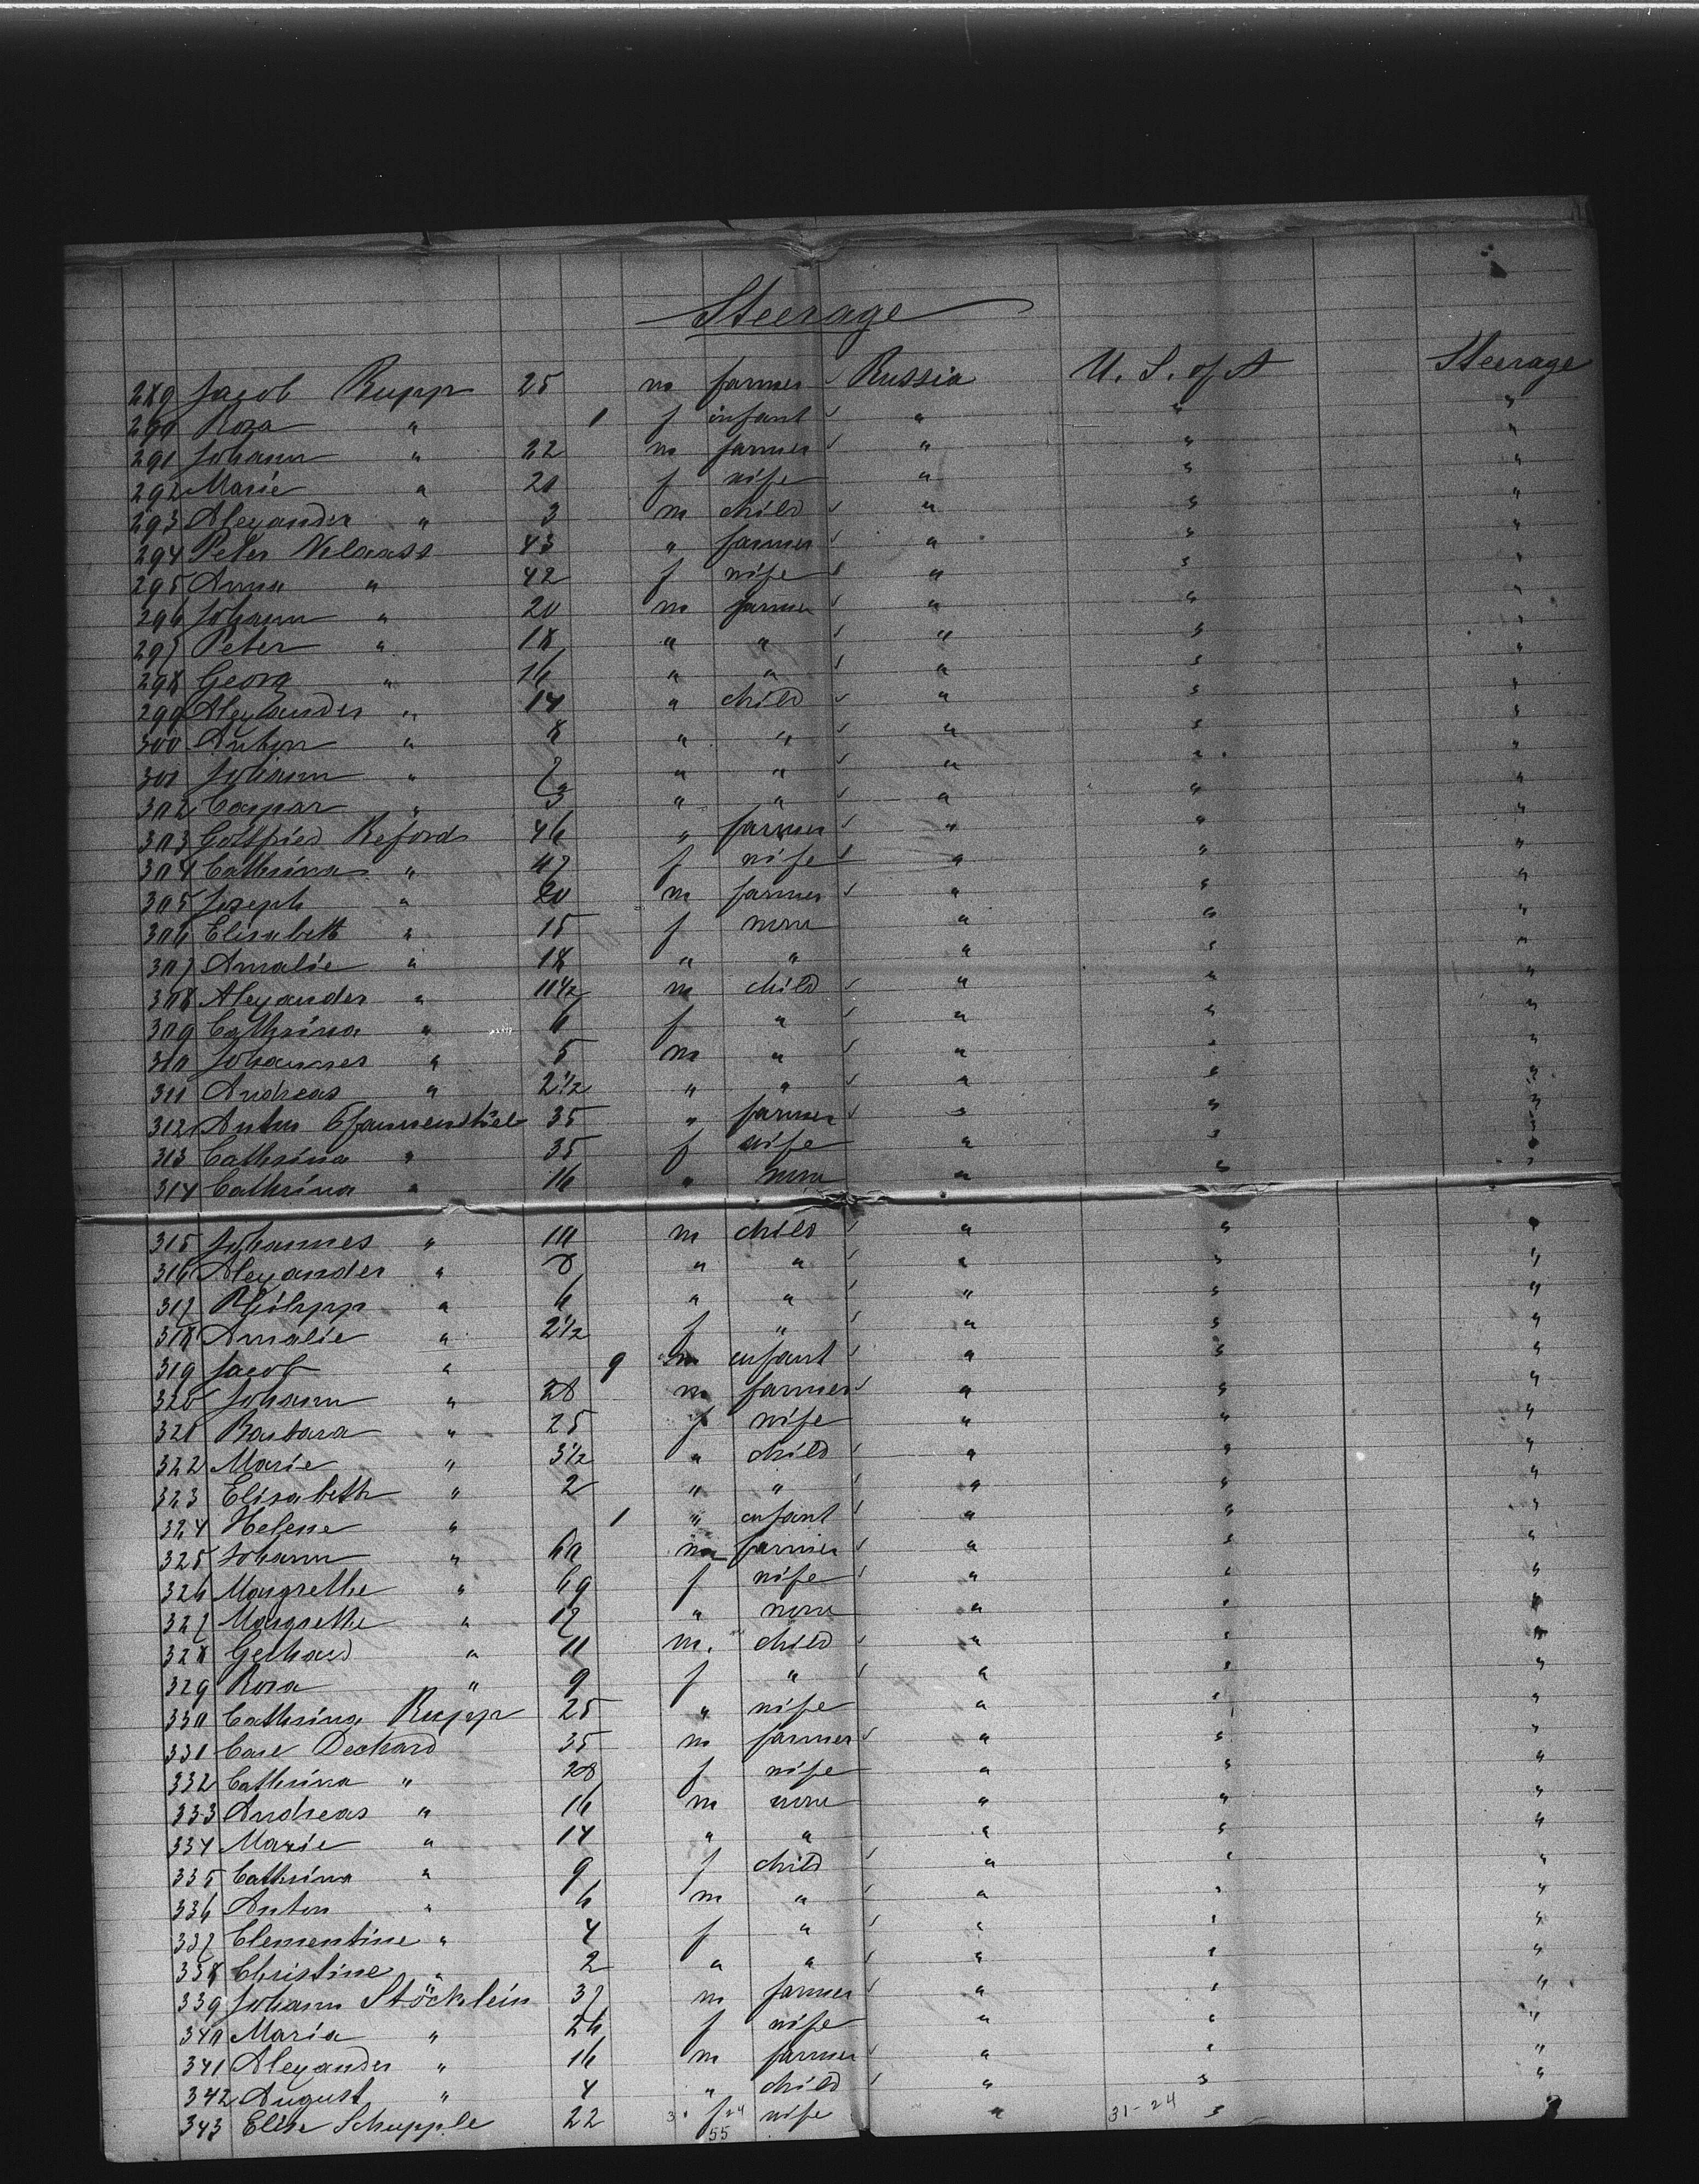 Steerage
289 Jacob Rupp 25 m farmer ✓ Russia U. S. of A Steerage
290 Rosa " 1 f infant ✓ " " "
291 Johann " 22 m farmer ✓ " " "
292 Marie " 20 f wife " " "
293 Alexander " 3 m child ✓ " " "
294 Peter 43 " farmer ✓ " " "
295 Anna " 42 f wife " " "
296 Johann " 20 m farmer ✓ " " "
297 Peter " 18 " " ✓ " " "
298 Georg " 16 " " ✓ " " "
299 Alexander " 14 " child ✓ " " "
300 Anton " 8 " " ✓ " " "
301 Johann " 7 " " ✓ " " "
302 Caspar " 3 " " ✓ " " "
303 Gottfried Reford 46 " farmer ✓ " " "
304 Cathrina " 47 f wife " " "
305 Joseph " 20 m farmer ✓ " " "
306 Elisabeth " 15 f none " " "
307 Amalie " 18 " " " " "
308 Alexander " 11½ m child ✓ " " "
309 Cathrina " 6 f " ✓ " " "
310 Johannes " 5 m " ✓ " " "
311 Andreas " 2½ " " ✓ " " "
312 Anton Pfannenstiel 35 " farmer ✓ " " "
313 Cathrina " 35 f wife " " "
314 Cathrina " 16 " none " " "
315 Johannes " 10 m child ✓ " " "
316 Alexander " 8 " " ✓ " " "
317 Philipp " 6 " " ✓ " " "
318 Amalie " 2½ f " ✓ " " "
319 Jacob " 9 m infant ✓ " " "
320 Johann " 28 m farmer ✓ " " "
321 Barbara " 25 f wife " " "
322 Marie " 3½ " child ✓ " " "
323 Elisabeth " 2 " " ✓ " " "
324 Helene " 1 " infant ✓ " " "
325 Johann " 60 m farmer ✓ " " "
326 Margrethe " 69 f wife ✓ " " "
327 Margrethe " 17 " none " " "
328 Gerhard " 11 m. child ✓ " " "
329 Rosa " 9 f " ✓ " " "
330 Cathrina Rupp 25 " wife " " "
331 Carl Dechard 35 m farmer ✓ " " "
332 Cathrina " 28 f wife " " "
333 Andreas " 16 m none " " "
334 Marie " 14 " " " " "
335 Cathrina " 9 f child ✓ " " "
336 Anton " 6 m " ✓ " " "
337 Clementine " 4 f " ✓ " " "
338 Christine " 2 " " ✓ " " "
339 Johann Stöcklein 37 m farmer ✓ " " "
340 Maria " 26 f wife " " "
341 Alexander " 16 m farmer ✓ " " "
342 August " 4 " child ✓ " " "
343 Elise Schupple 22 f wife " 31-24 "
55